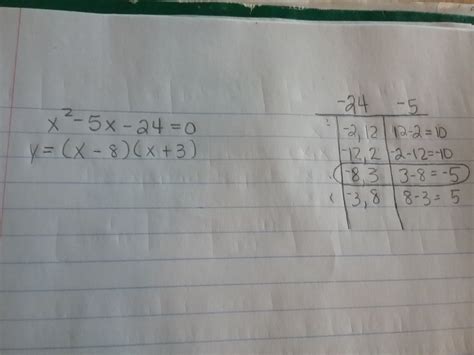 x²-5x-24=0
y=(x-8)(x+3)
-24 -5
-2,12 12-2=10
-12,2 -2-12=-10
-8,3 3-8=-5
-3,8 8-3=5